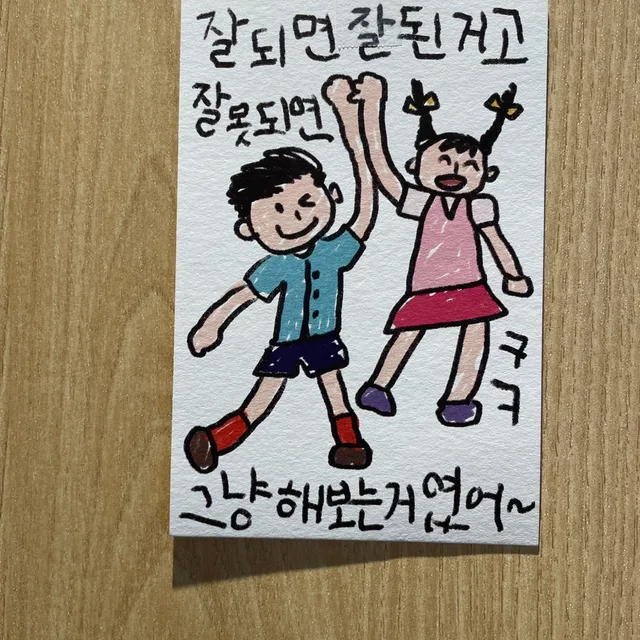 잘되면 잘된거고
잘못되면
ㅋ
ㅋ
그냥 해보는거였어~